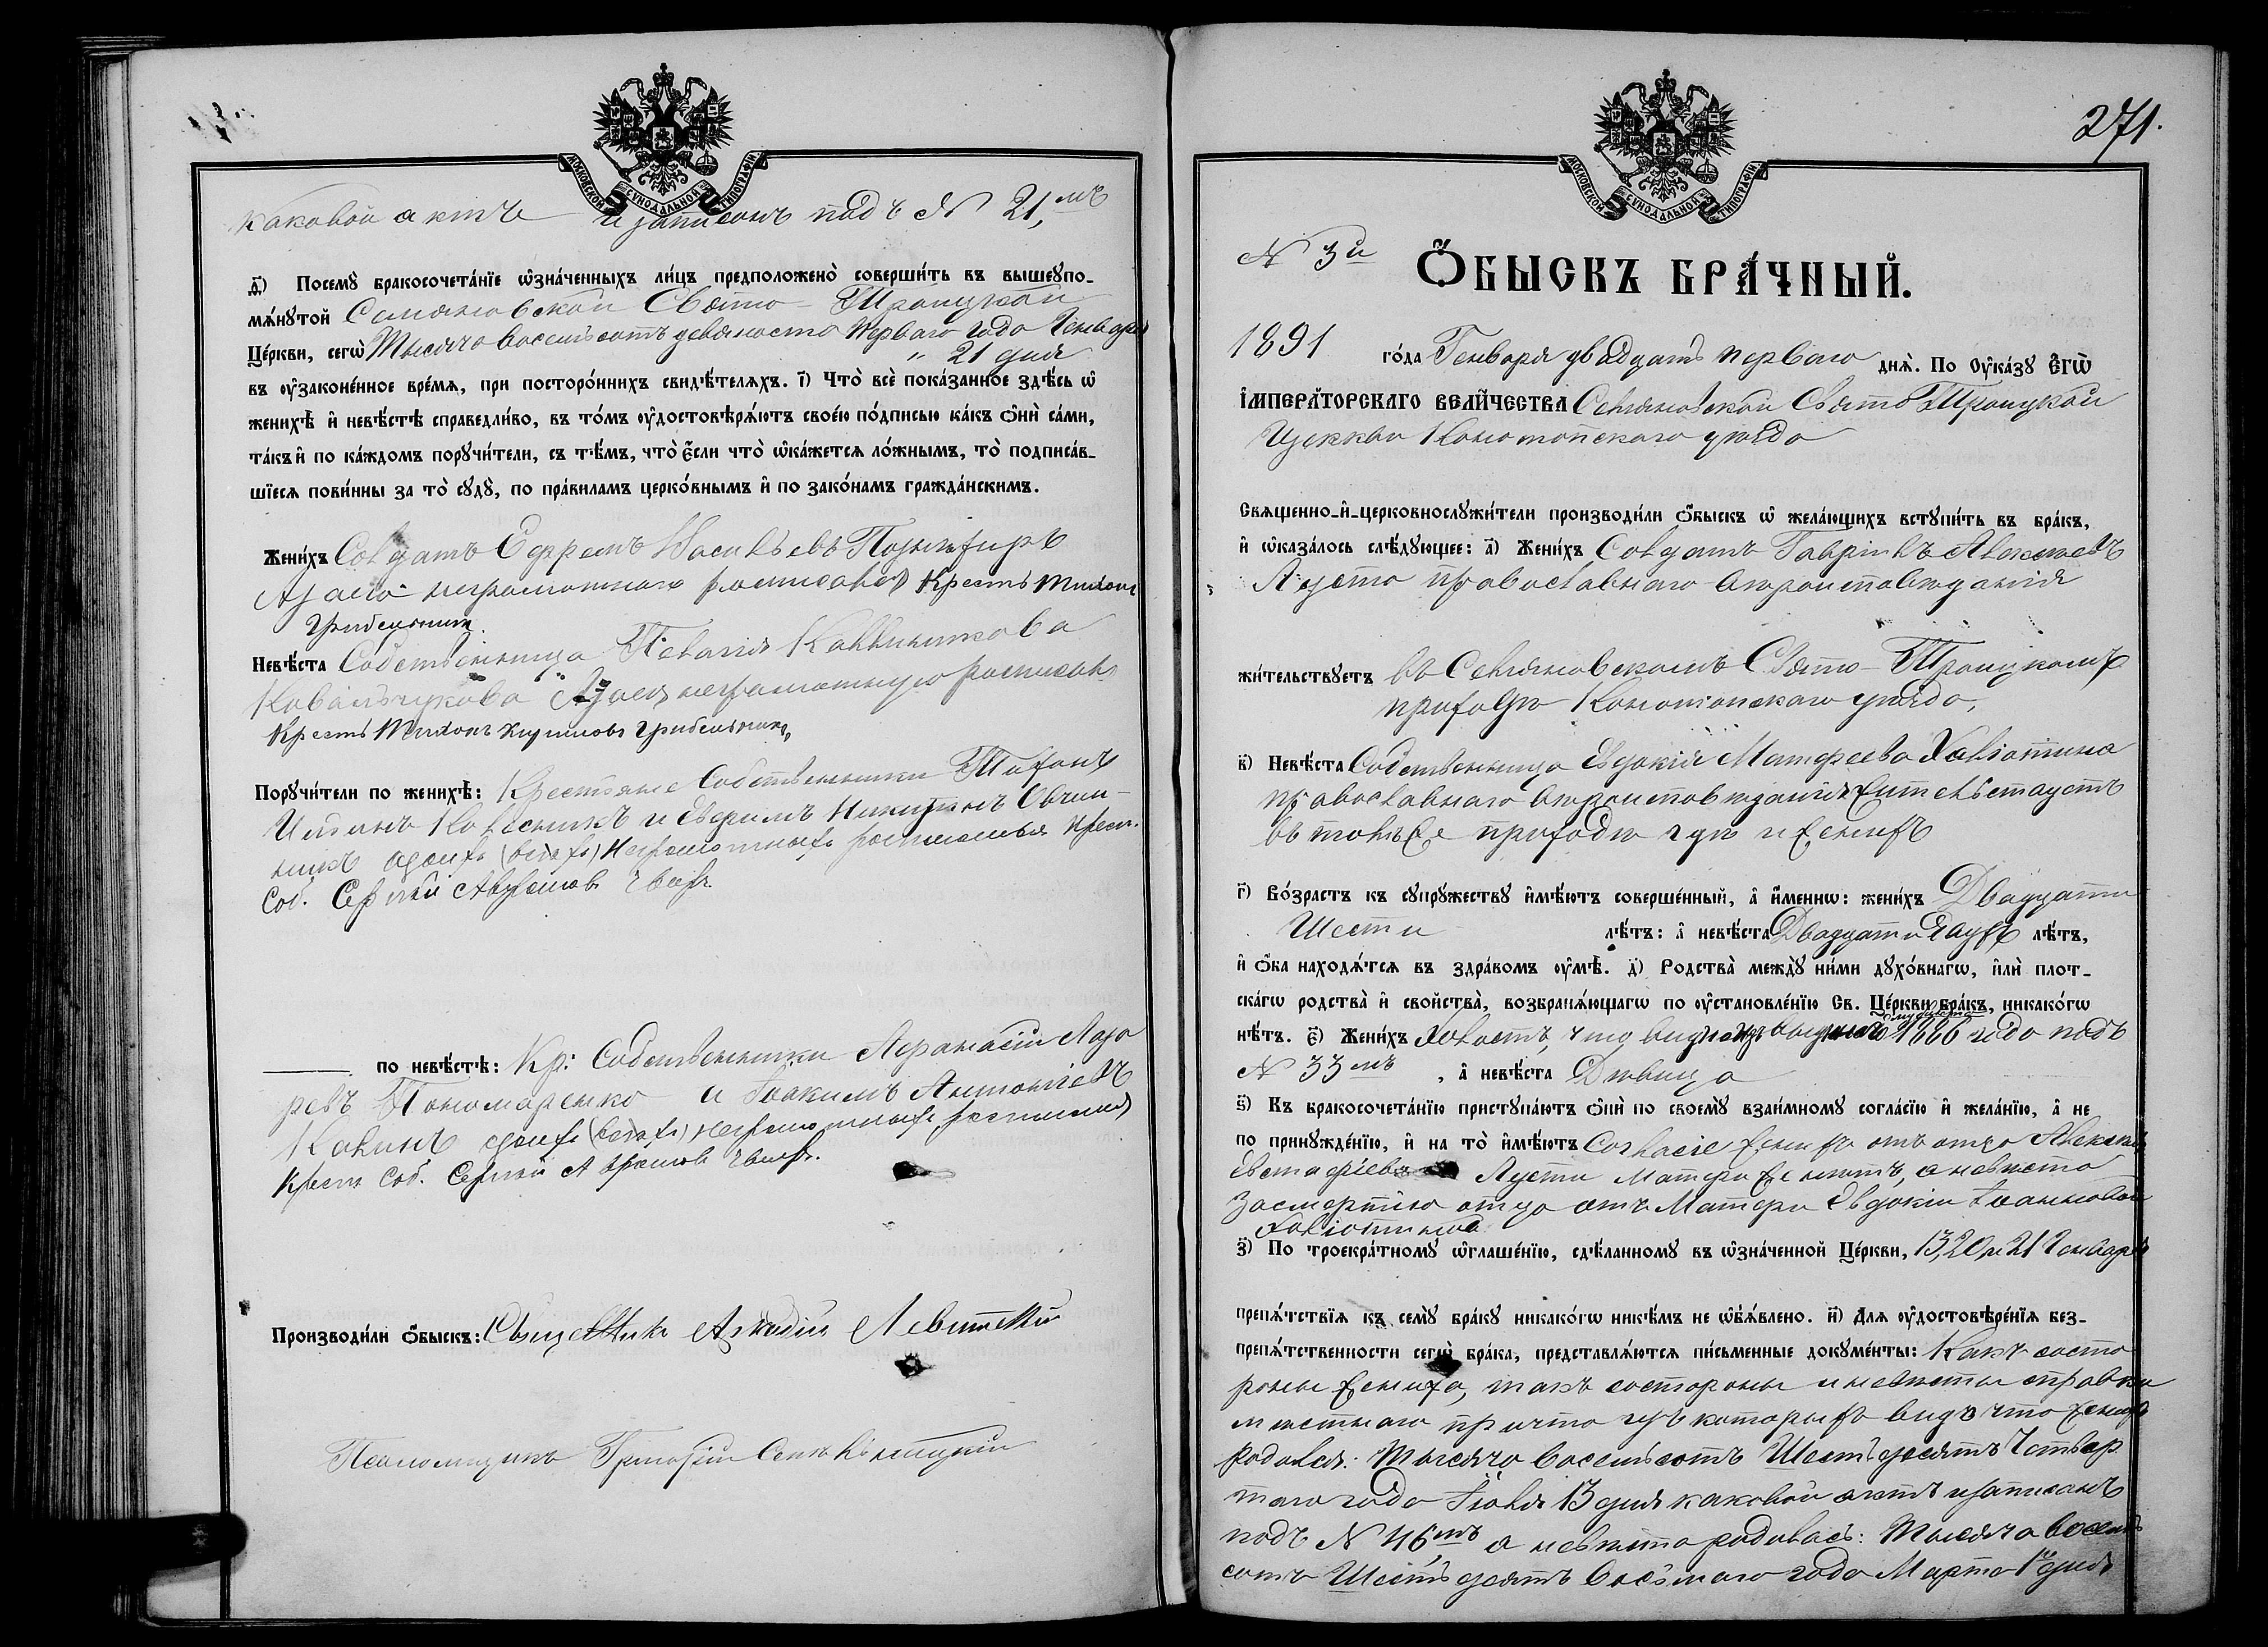 МОСКОВСКОЙ СУНОДАЛЬНОЙ ТИПОГРАФІИ
каковой актъ и записанъ подъ № 21,мъ
д҃і) Посемꙋ̀ бракосочета́нїе ѡ҆зна́ченныхъ ли́цъ предположено̀ соверши́ть въ вышеꙋпо-
мѧ́нꙋтой Семяновской Свято-Троицкой
Це́ркви, сегѡ̀ Тысяча восемьсотъ девяносто перваго года Генваря
„ 21 дня
въ ᲂу҆законе́нное вре́мѧ, при посторо́ннихъ свидѣ́телѧхъ. і҃) Что̀ всѐ пока́занное здѣ́сь ѡ҆
женихѣ̀ и҆ невѣ́стѣ справедли́во, въ то́мъ ᲂу҆достовѣрѧ́ютъ свое́ю по́дписью ка́къ ѻ҆нѝ са́ми,
та́къ и҆ по ка́ждомъ порꙋчи́тели, съ тѣ́мъ, что̀ є҆́сли что̀ ѡ҆ка́жетсѧ ло́жнымъ, то̀ подписа́в-
шїесѧ пови́нны за то̀ сꙋдꙋ̀, по пра́виламъ церко́внымъ и҆ по зако́намъ гражда́нскимъ.
Жени́хъ Солдатъ Ефремъ Васильевъ
А за него неграмотнаго росписался Крест. Тихонъ
Грибельникъ
Невѣ́ста Собственница Пелагія
Ковальчукова А за ея неграмотную росписался
Крест. Тихонъ Кириловъ Грибельникъ
Порꙋчи́тели по женихѣ̀: Крестьяне Собственники Тихонъ
Колесникъ и Ефимъ Никитинъ Овчин-
никъ а за нихъ (всехъ) Неграмотныхъ росписался Крест.
Соб. Сергий
по невѣ́стѣ: Кр: Собственники Афанасій Лаза
ревъ Пономаренко и Іоакимъ Антоніевъ
Калинъ а за нихъ (всехъ) неграмотныхъ росписался
Крест Соб. Сергий
Производи́ли ѻ҆́быскъ: Священникъ Аркадій Левитскій
Псаломщикъ Григорій
МОСКОВСКОЙ СУНОДАЛЬНОЙ ТИПОГРАФІИ
271.
№ 3й
Ѻ҆́БЫСКЪ БРА́ЧНЫЙ.
1891 го́да Генваря двадцать перваго днѧ̀. По Оу҆ка́зꙋ Є҆гѡ̀
І҆мпера́торскаго Вели́чества Семяновской Свято Троицкой
Церкви Конотопского уѣзда
Свѧщенно-и҆-церковнослꙋжи́тели производи́ли ѻ҆́быскъ ѡ҆ жела́ющихъ вступи́ть въ бра́къ,
и҆ ѡ҆каза́лось слѣ́дꙋющее: а҃) Жени́хъ Солдатъ Гавріилъ Алексѣевъ
Лусто православнаго вѣроисповѣданія
жи́тельствꙋетъ въ Семяновскомъ Свято-Троицкомъ
приходѣ Конотопскаго уѣзда,
в҃) Невѣ́ста Собственница Евдокія Матфеева Хавіотина
православнаго вѣроисповѣданія жительствуетъ
въ томъ же приходѣ гдѣ и женихъ
г҃) Во́зрастъ къ сꙋпрꙋ́жествꙋ и҆мѣ́ютъ соверше́нный, а҆ и҆́меннѡ: жени́хъ Двадцати
Шести лѣ́тъ: а҆ невѣ́ста Двадцати двухъ лѣ́тъ,
и҆ ѻ҆́ба нахо́дѧтсѧ въ здра́вомъ ᲂу҆мѣ̀. д҃) Родства̀ междꙋ̀ ни́ми дꙋхо́внагѡ, и҆лѝ плот-
ска́гѡ родства̀ и҆ сво́йства, возбранѧ́ющагѡ по ᲂу҆становле́нїю Св. Це́ркви бра́къ, никако́гѡ
нѣ́тъ. є҃) Жени́хъ Холостъ, что видно изъ 1886 года подъ
№ 33мъ, а҆ невѣ́ста Дѣвица
ѕ҃) Къ бракосочета́нїю приступа́ютъ ѻ҆нѝ по своемꙋ̀ взаи́мномꙋ согла́сїю и҆ жела́нїю, а҆ не
по принꙋжде́нїю, и҆ на то̀ и҆мѣ́ютъ Согласіе женихъ отъ отца Алексѣя
Евстафіева Лусты Матери же нѣтъ, а невѣста
За смертію отца отъ Матери Евдокіи Іоанновой
Хавіотиной
з҃) По троекра́тномꙋ ѡ҆глаше́нїю, сдѣ́ланномꙋ въ ѡ҆зна́ченной Це́ркви, 13, 20, и 21 Генваря
препѧ́тствїѧ къ семꙋ̀ бра́кꙋ никако́гѡ никѣ́мъ не ѡ҆б̾ѧ́влено. и҃) Длѧ ᲂу҆достовѣре́нїѧ без-
препѧ́тственности сегѡ̀ бра́ка, представлѧ́ютсѧ пи́сьменные докꙋме́нты: Какъ со сто
роны жениха, такъ со стороны и невѣсты справки
мѣстнаго причта изъ которыхъ видъ что женихъ
родился: Тысяча восемьсотъ Шестьдесятъ Четвер
таго года Іюля 13 дня каковой актъ и записанъ
подъ № 46,мъ а невѣста родилась: Тысяча восемь
сотъ Шестьдесятъ Восьмаго года Марта 1го дня